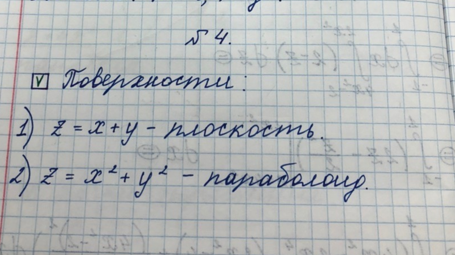 № 4.
V Поверхности:
1) z = x + y - плоскость.
2) z = x² + y² - параболоид.